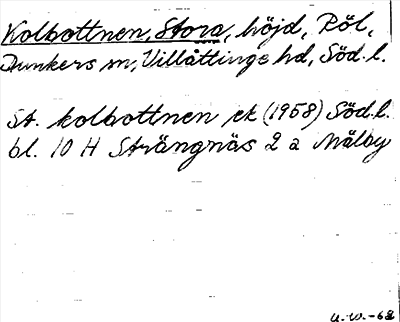 Kolbottnen, Stora, höjd, Röl,
Dunkers sn, Villåttinge hd, Söd. l.
St. kolbottnen ek (1958) Söd. l.
bl. 10 H Strängnäs 2 a Målby
U.W.-62